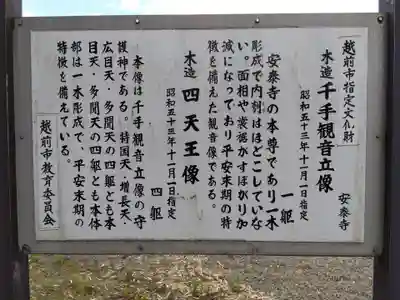 越前市指定文化財
木造 千手観音立像 一躯
昭和五十三年十一月一日指定 安泰寺
安泰寺の本尊であり一木
彫成で内刳はほどこしていな
い。面相や裳裾がすぼがりか
減になっており平安末期の特
徴を備えた観音像である。
木造 四天王像 四躯
昭和五十三年十一月一日指定
本像は千手観音立像の守
護神である。持国天・増長天・
広目天・多聞天の四躯とも本
目天・多聞天の四躯とも本体
部は一木彫成で、平安末期の
特徴を備えている。
越前市教育委員会